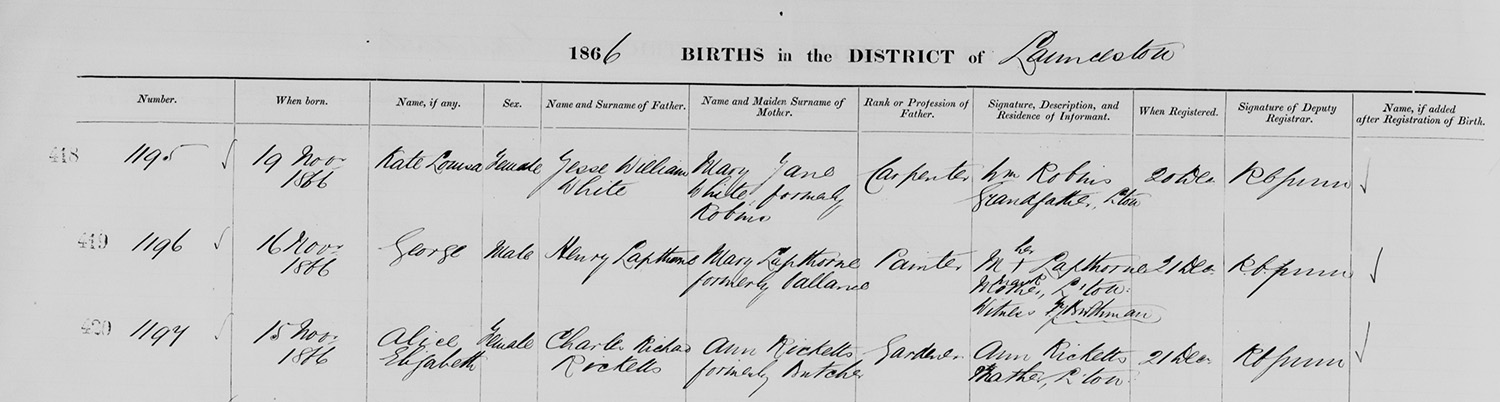 1866 BIRTHS in the DISTRICT of Launceston
Number. When born. Name, if any. Sex. Name and Surname of Father. Name and Maiden Surname of Mother. Rank or Profession of Father. Signature, Description, and Residence of Informant. When Registered. Signature of Deputy Registrar. Name, if added after Registration of Birth.
418 1195 19 Nov. Kate Louisa Female Jesse William Mary Jane Carpenter Wm Robins 20 Dec
1866 White White, formerly Grandfather, L'ton
Robins
419 1196 16 Nov. George Male Henry Lapthorne Mary Lapthorne Painter M + Lapthorne 21 Dec
her
1866 formerly Vallance mark
Mother, L'ton
Witness
420 1197 15 Nov. Alice Female Charles Richard Ann Ricketts Gardener Ann Ricketts 21 Dec
1866 Elizabeth Ricketts formerly Butcher Mother, L'ton